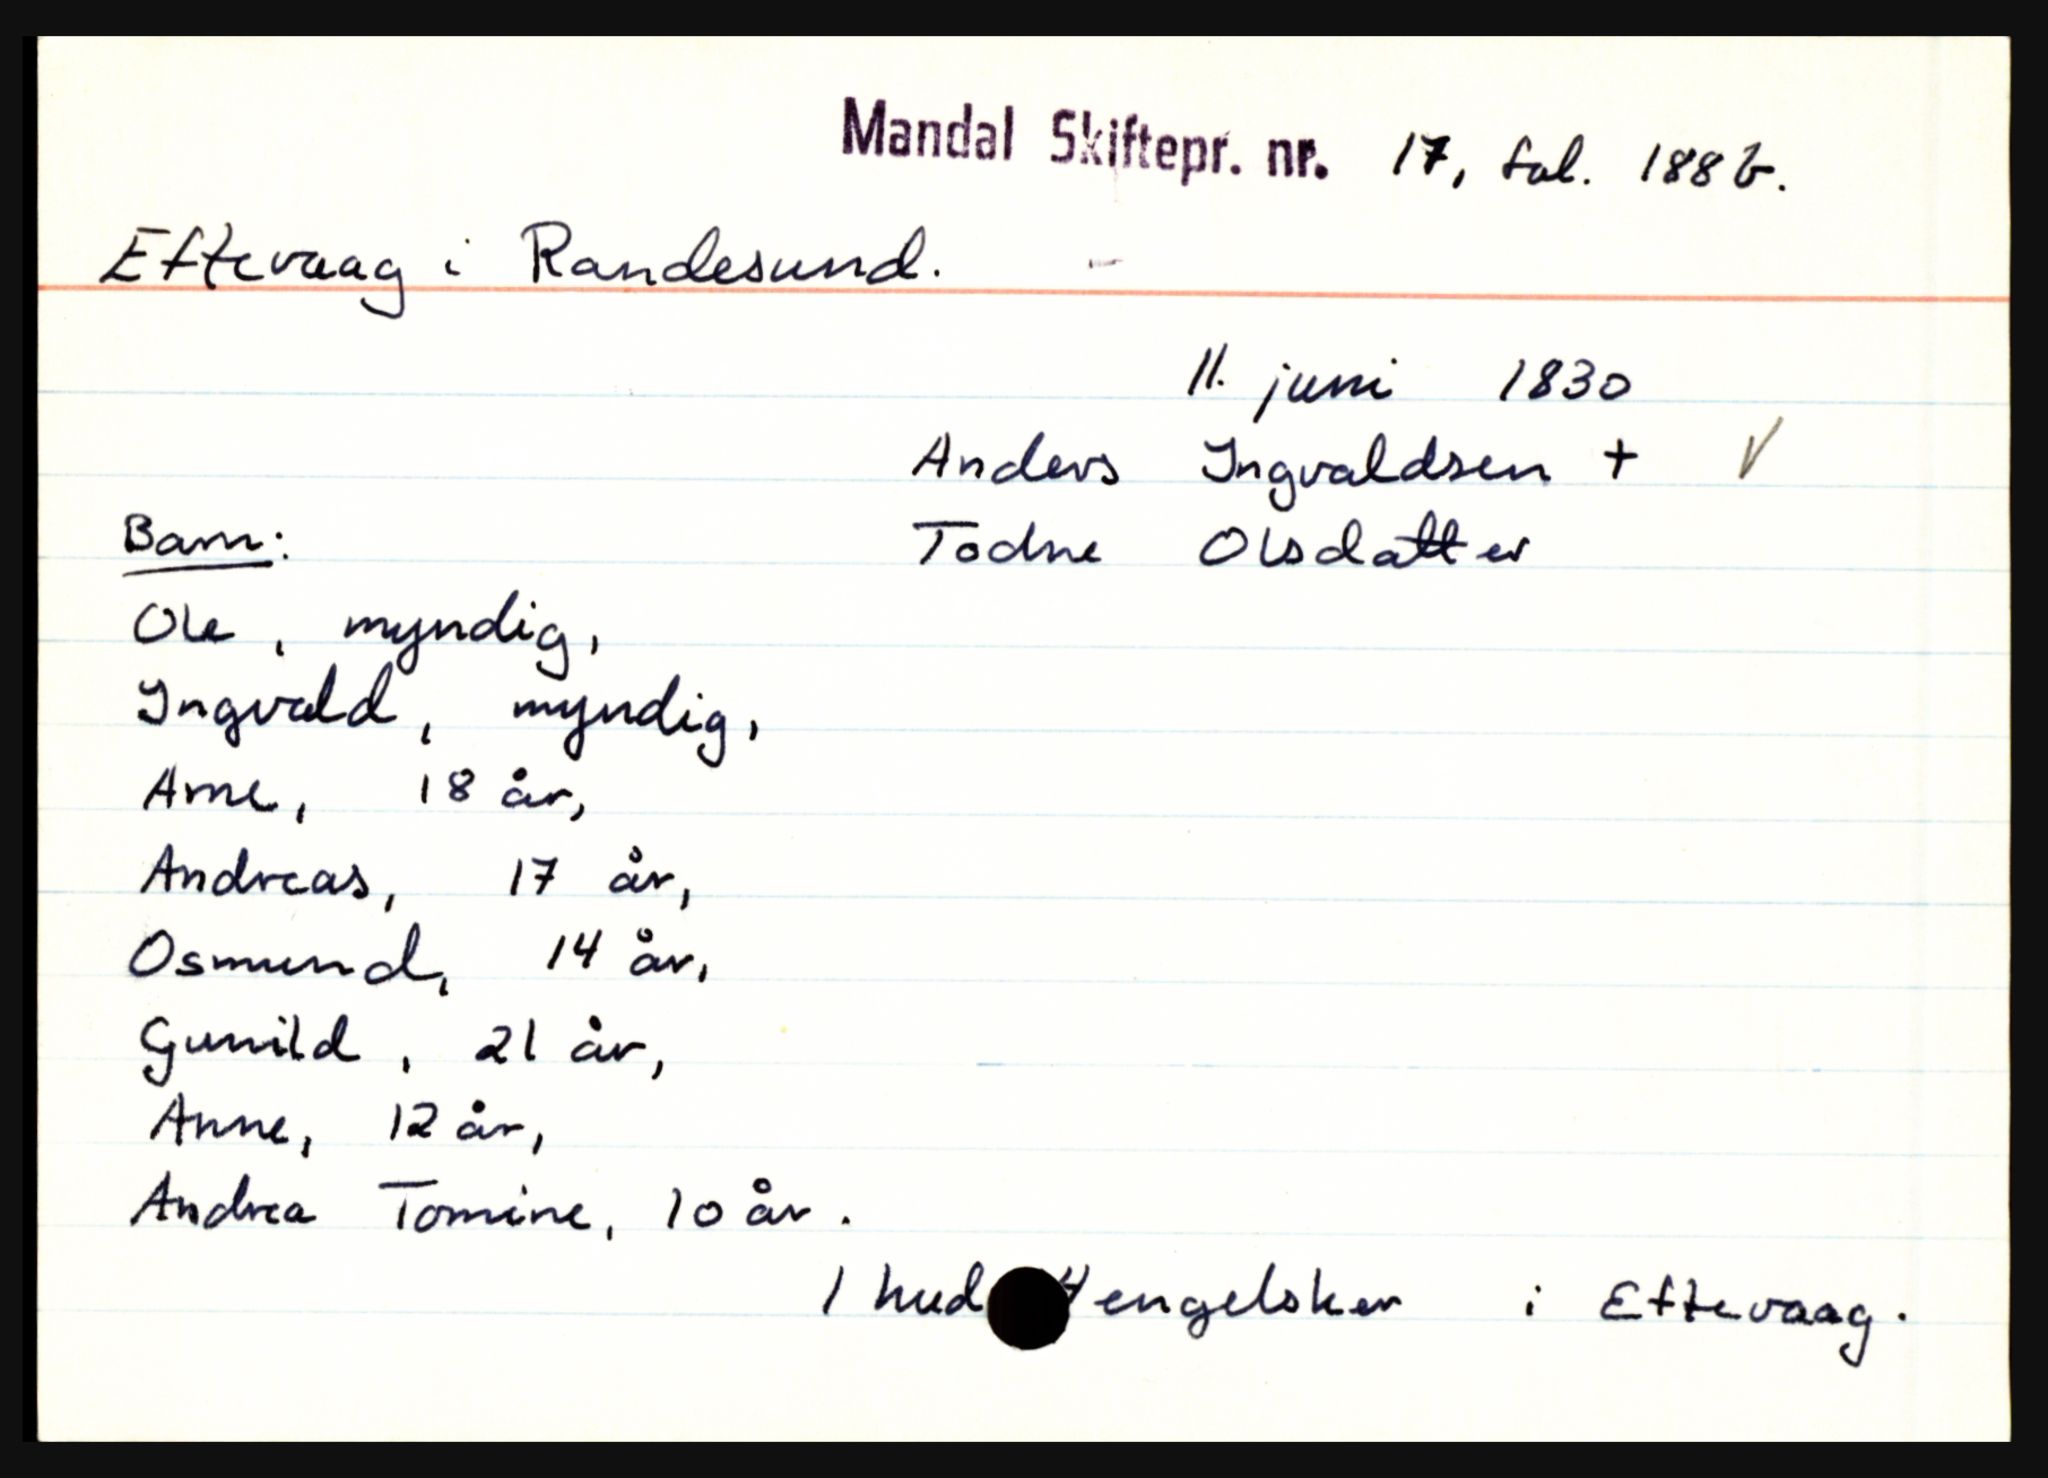 Mandal Skiftepr. nr. 17, fol. 188 b.
Eftevaag i Randesund. -
11. juni 1830
Anders Ingvaldsen +
Todne Olsdatter
Barn:
Ole, myndig,
Ingvald, myndig,
Arne, 18 år,
Andreas, 17 år,
Osmund, 14 år,
Gunild, 21 år,
Anne, 12 år,
Andrea Tomine, 10 år.
1 hud engelsker i Eftevaag.